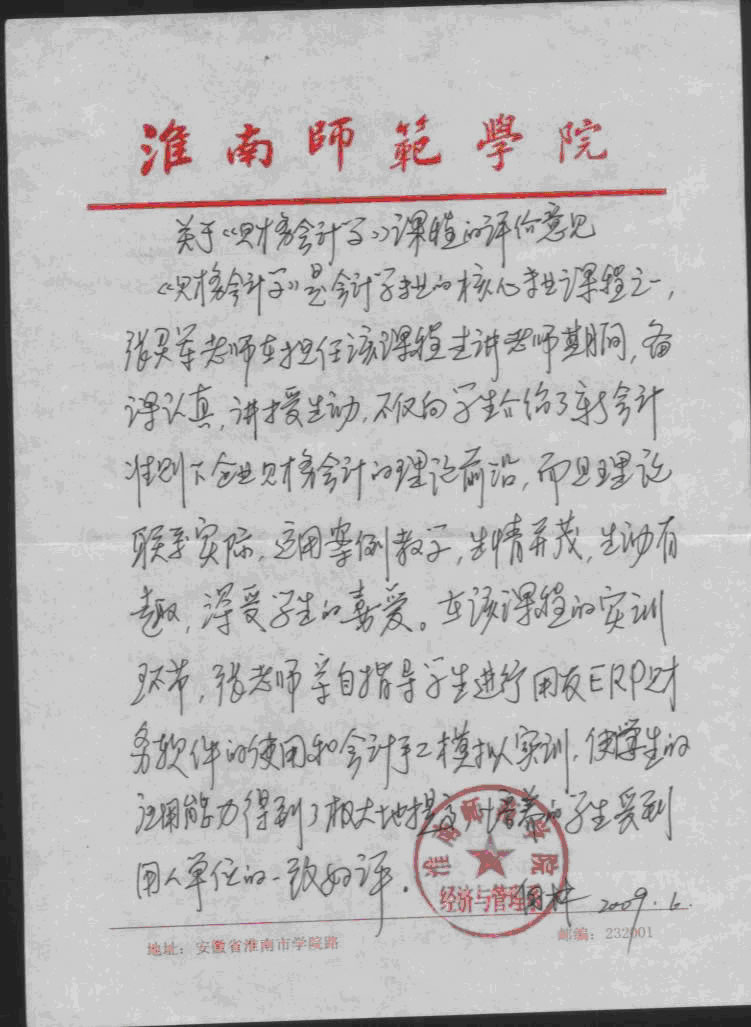 淮南師範學院
关于《财务会计学》课程的评价意见
《财务会计学》是会计学专业的核心专业课程之一，
张昊军老师在担任该课程主讲老师期间，备
课认真，讲授生动，不仅向学生介绍了新会计
准则下企业财务会计的理论前沿，而且理论
联系实际，运用案例教学，声情并茂，生动有
趣，深受学生的喜爱。在该课程的实训
环节，张老师亲自指导学生进行用友ERP财
务软件的使用和会计手工模拟实训，使学生的
应用能力得到了极大地提高，培养的学生受到
用人单位的一致好评。
淮南師範學院
经济与管理
2009.6.
地址：安徽省淮南市学院路
邮编：232001